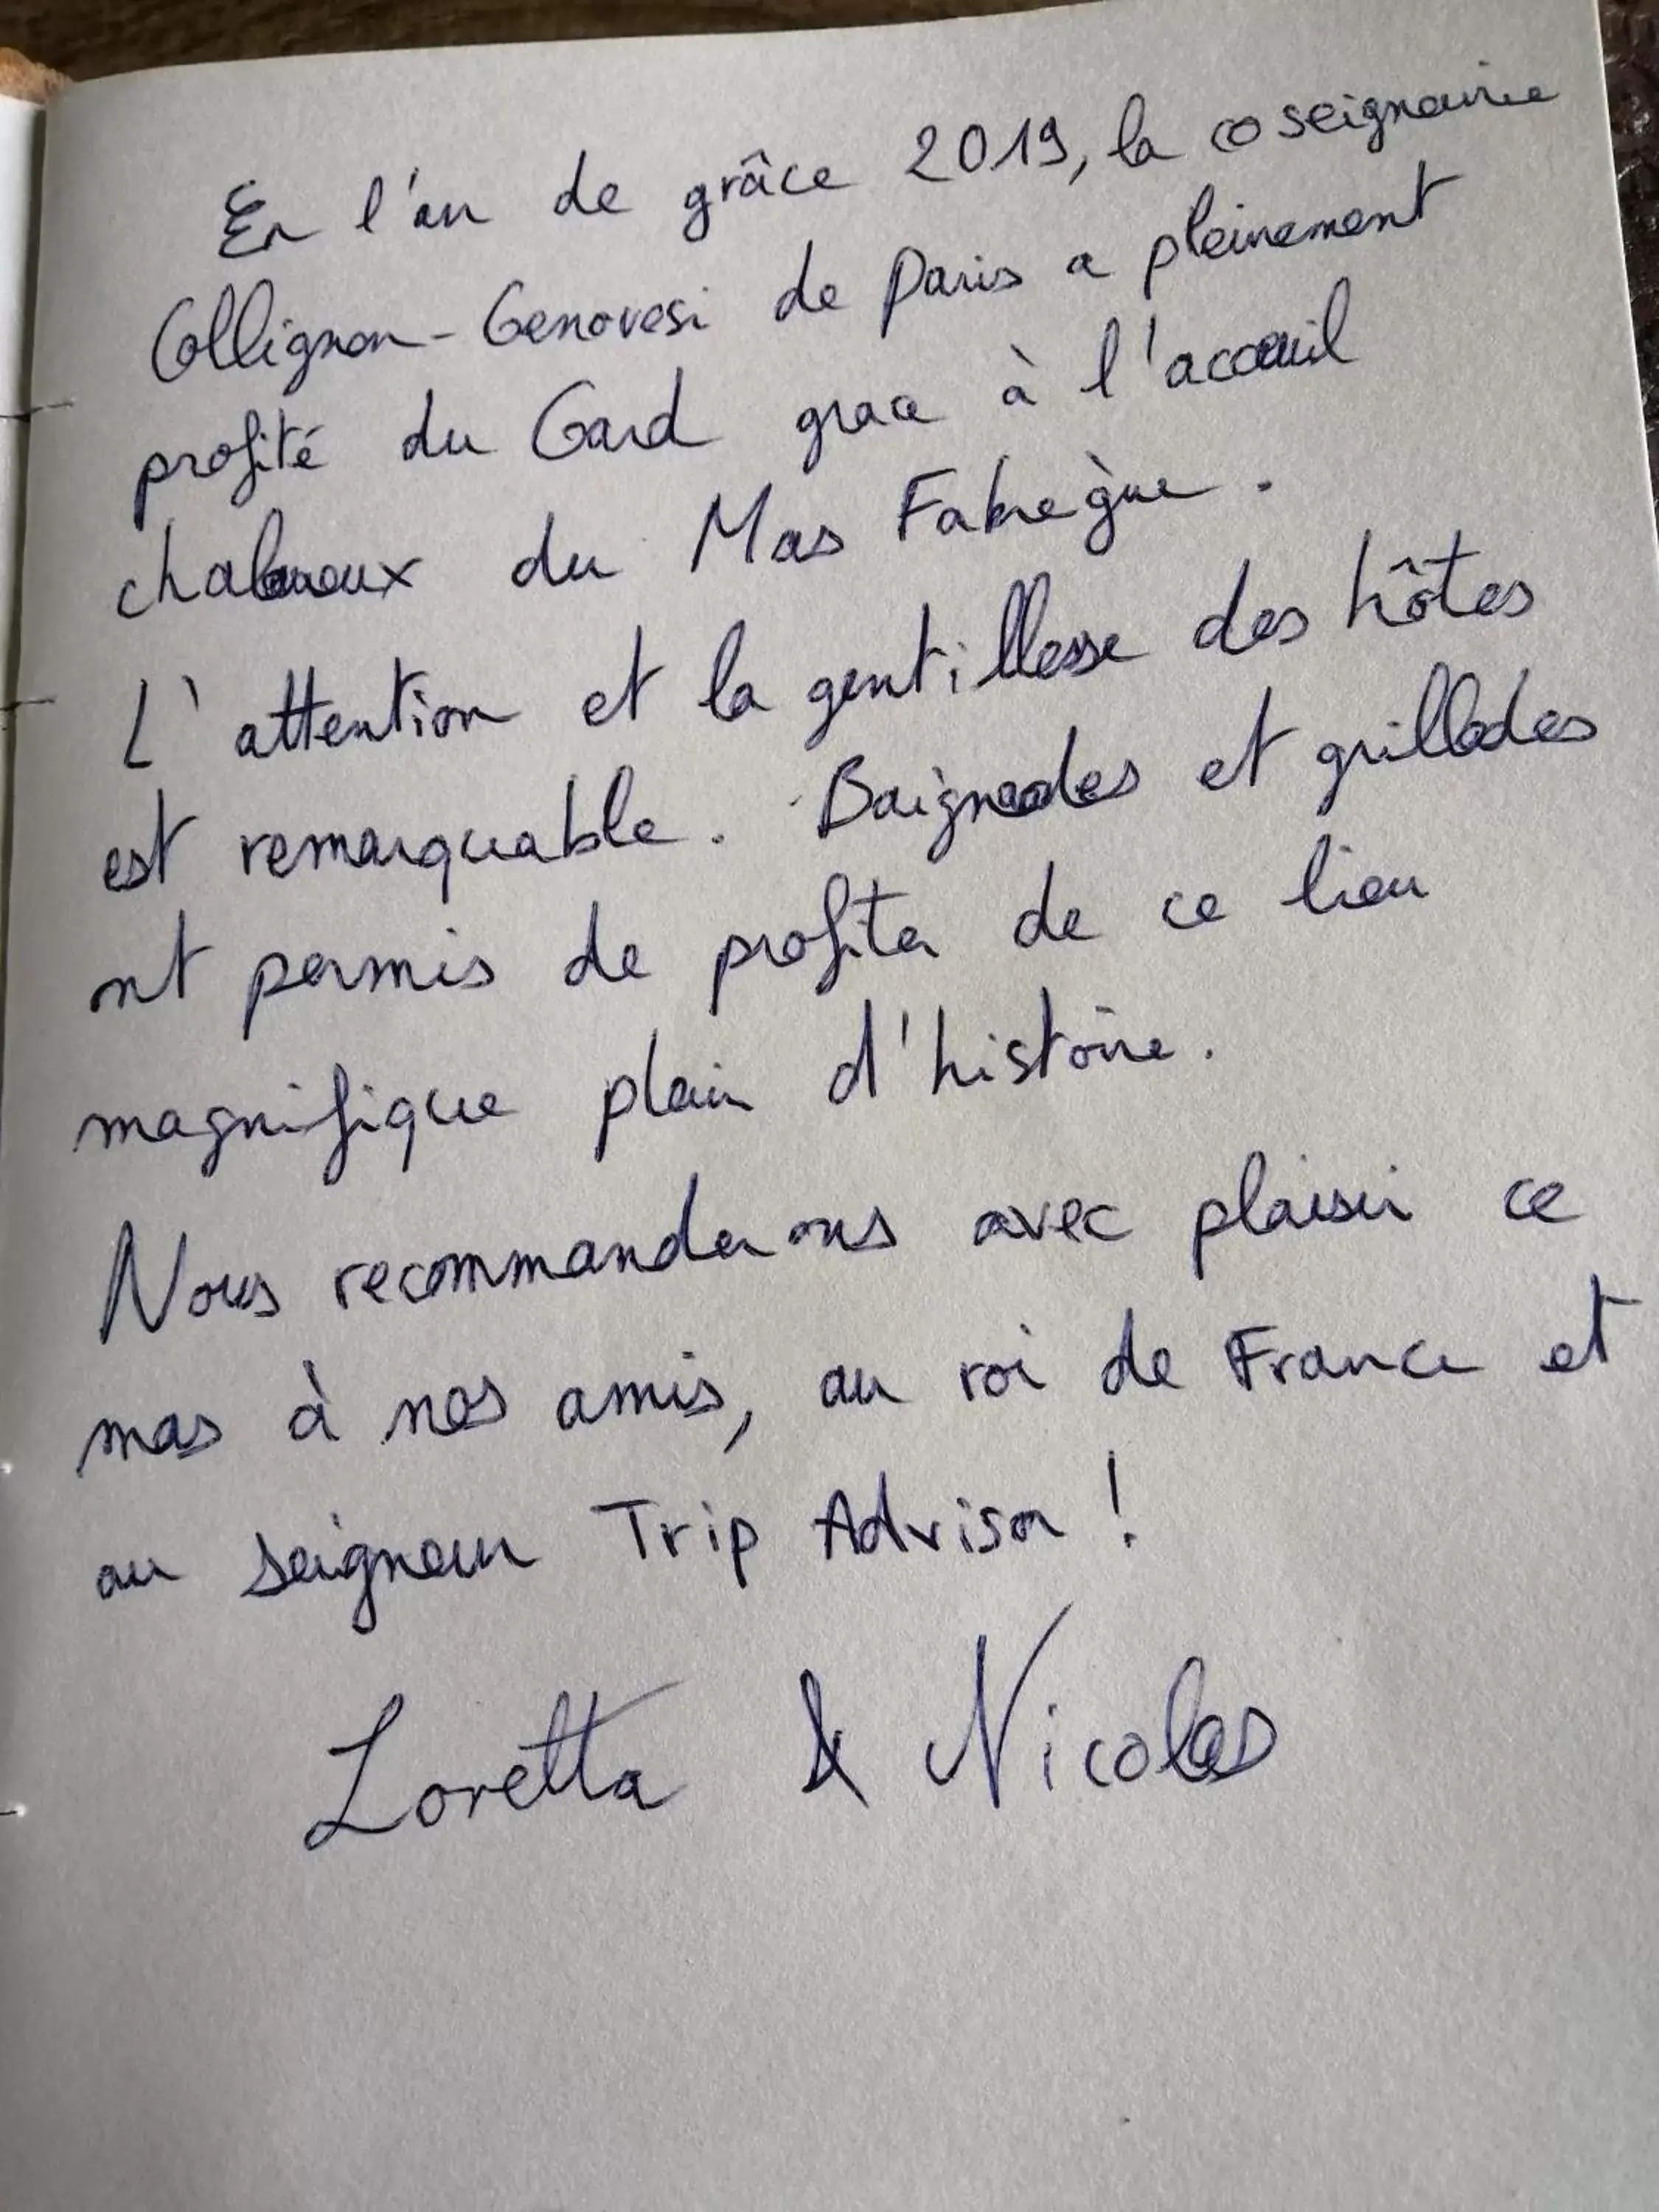 En l'an de grâce 2019, la coseigneurie
Collignon-Genovesi de Paris a pleinement
profité du Gard grace à l'accueil
chaleureux du Mas Fabrègue.
L'attention et la gentillesse des hôtes
est remarquable. Baignades et grillades
ont permis de profiter de ce lieu
magnifique plein d'histoire.
Nous recommanderons avec plaisir ce
mas à nos amis, au roi de France et
au seigneur Trip Advisor !
Loretta & Nicolas